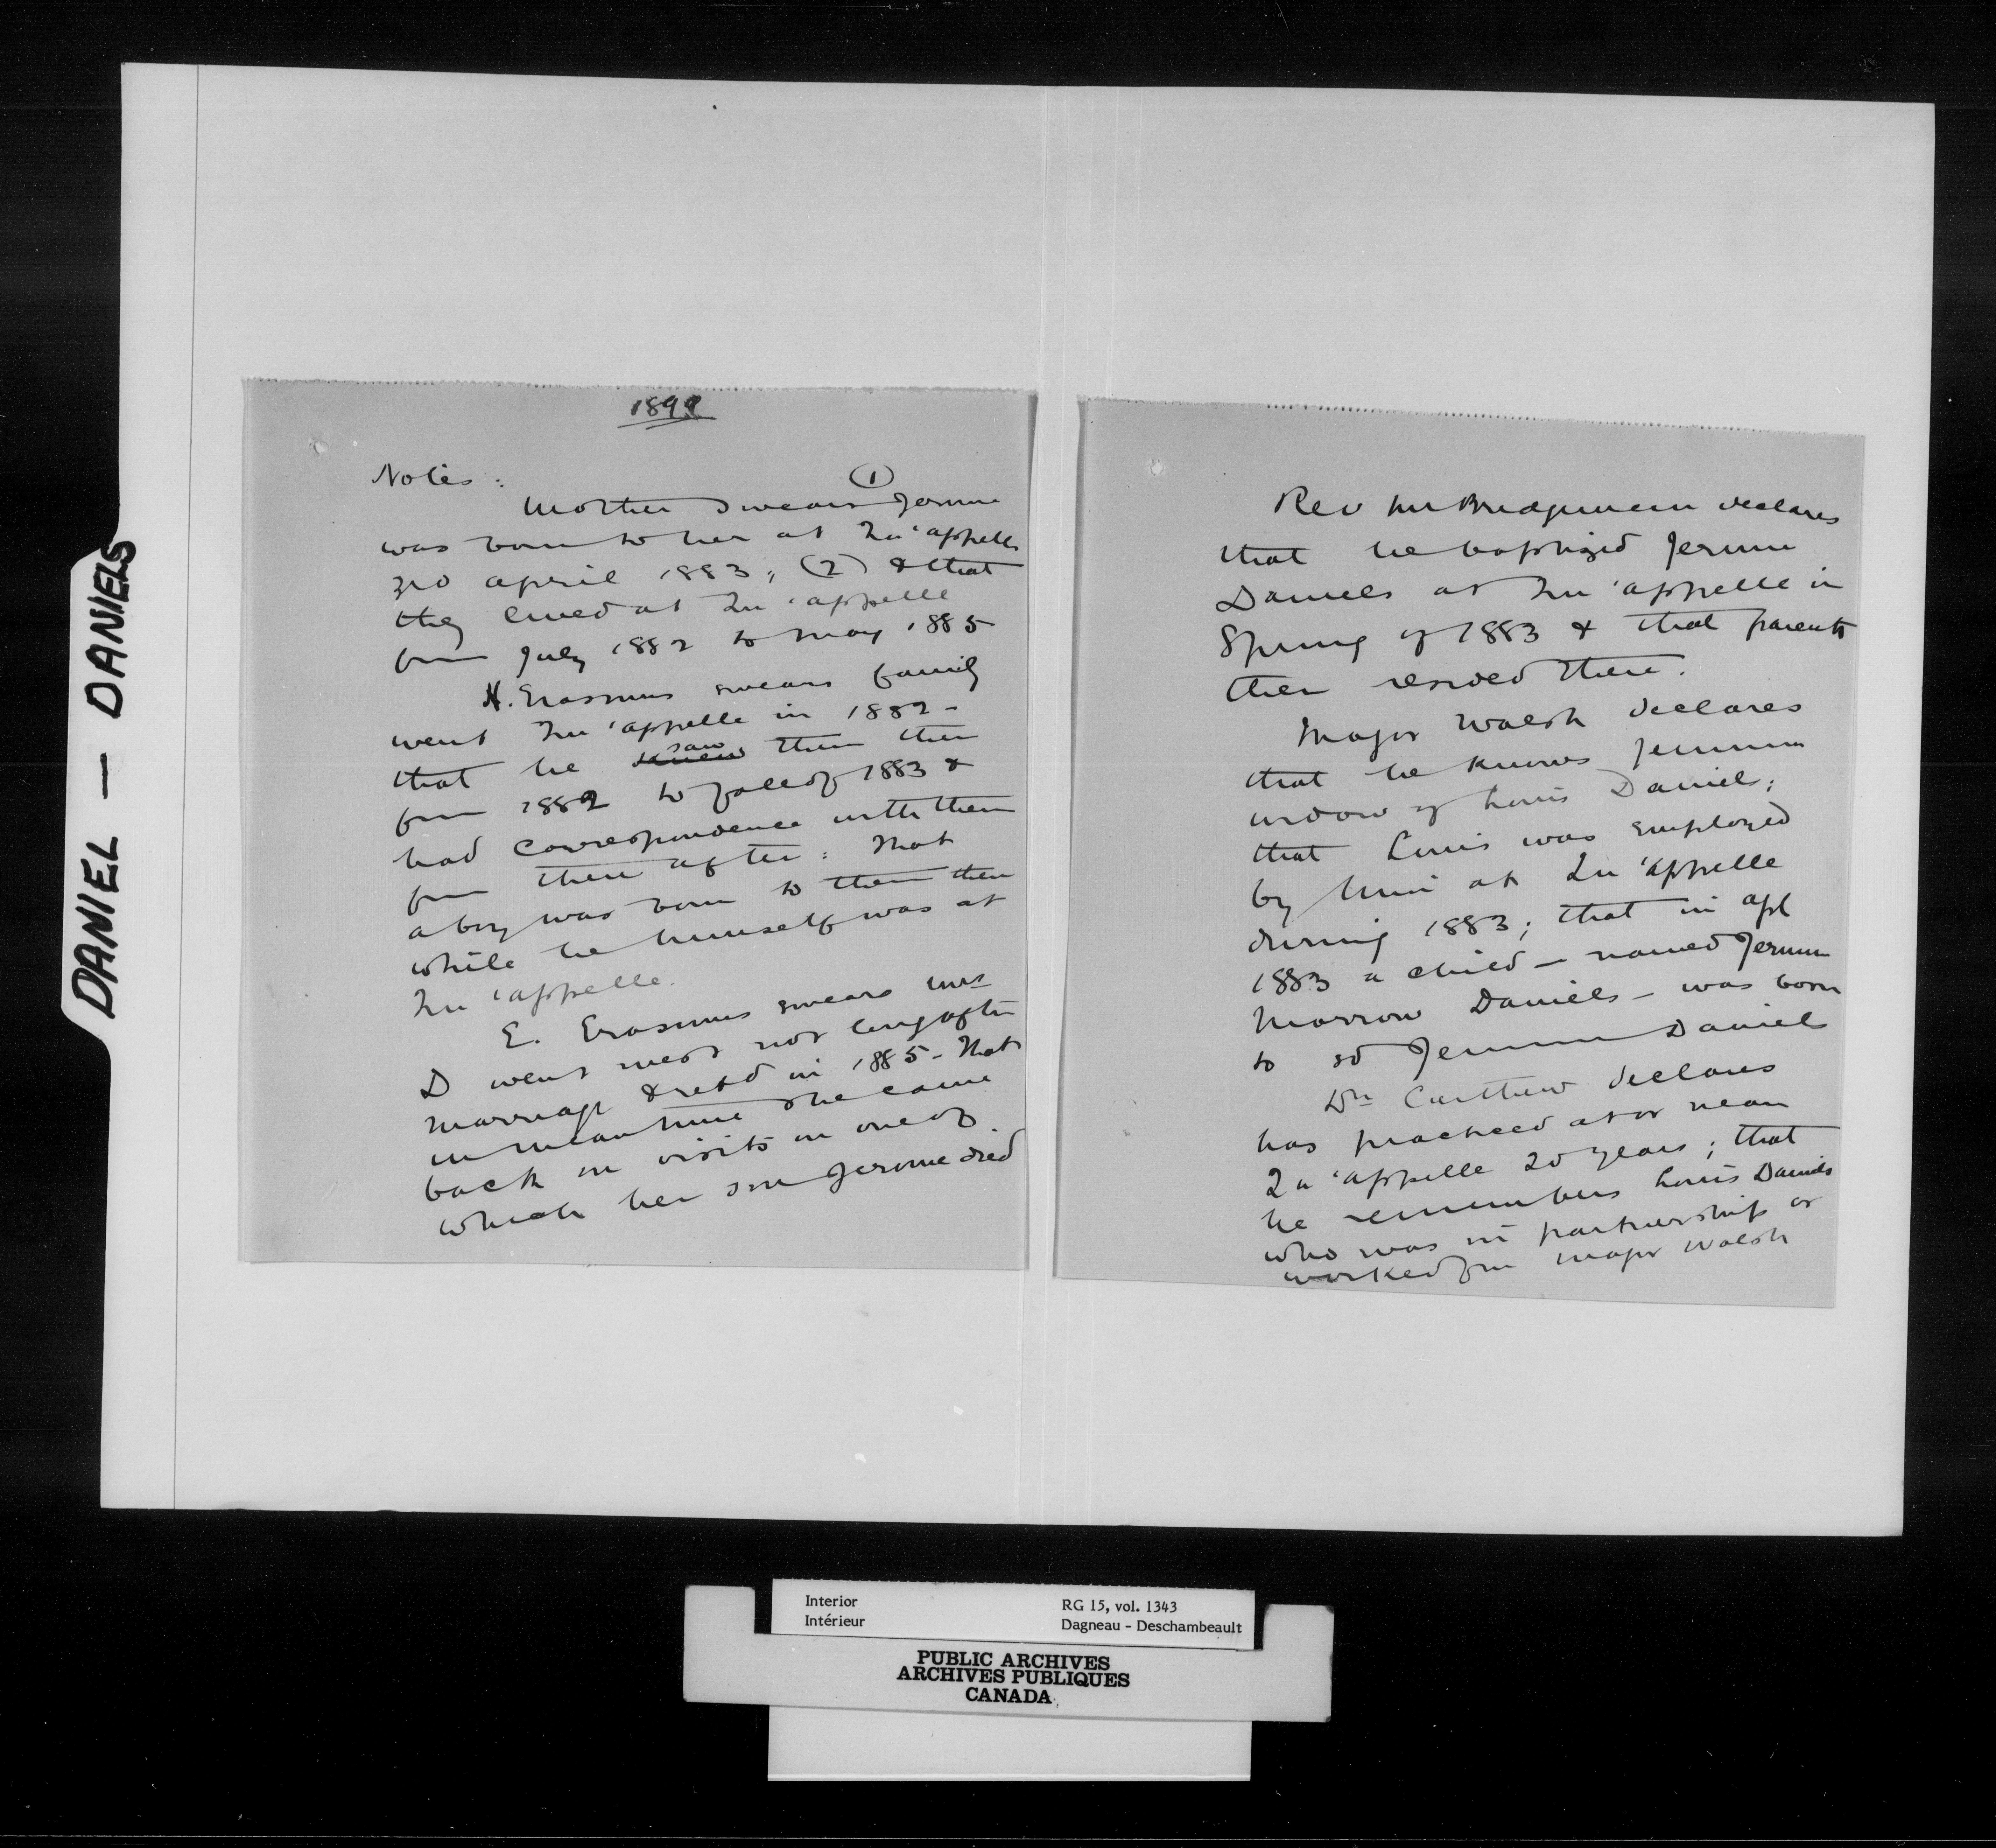 DANIEL — DANIELS
1899
Notes : (1)
Mother swears Jerome
was born to her at Qu'appelle
3rd april 1883; (2) & that
they lived at Qu'appelle
from July 1882 to may 1885
H. Erasmus swears family
went Qu'appelle in 1882 -
that he knew saw them then
from 1882 to fall of 1883 &
had correspondence with them
from there after: that
a boy was born to them then
while he himself was at
Qu'appelle.
E. Erasmus swears Mrs
D went west not long after
marriage & retd in 1885 - that
in meantime she came
back on visits on one of
which her son Jerome died
Rev Mr Bridgeman declares
that he baptized Jerome
Daniels at Qu'appelle in
Spring of 1883 & that parents
then resided there.
Major Walsh declares
that he knows Jemima
widow of Louis Daniel;
that Louis was employed
by him at Qu'appelle
during 1883; that in apl
1883 a child — named Jerome
Morrow Daniels — was born
to sd Jemima Daniels
Dr Carthew declares
has practiced at or near
Qu'appelle 20 years; that
he remembers Louis Daniels
who was in partnership or
worked for Major Walsh
Interior
Intérieur
RG 15, vol. 1343
Dagneau - Deschambeault
PUBLIC ARCHIVES
ARCHIVES PUBLIQUES
CANADA